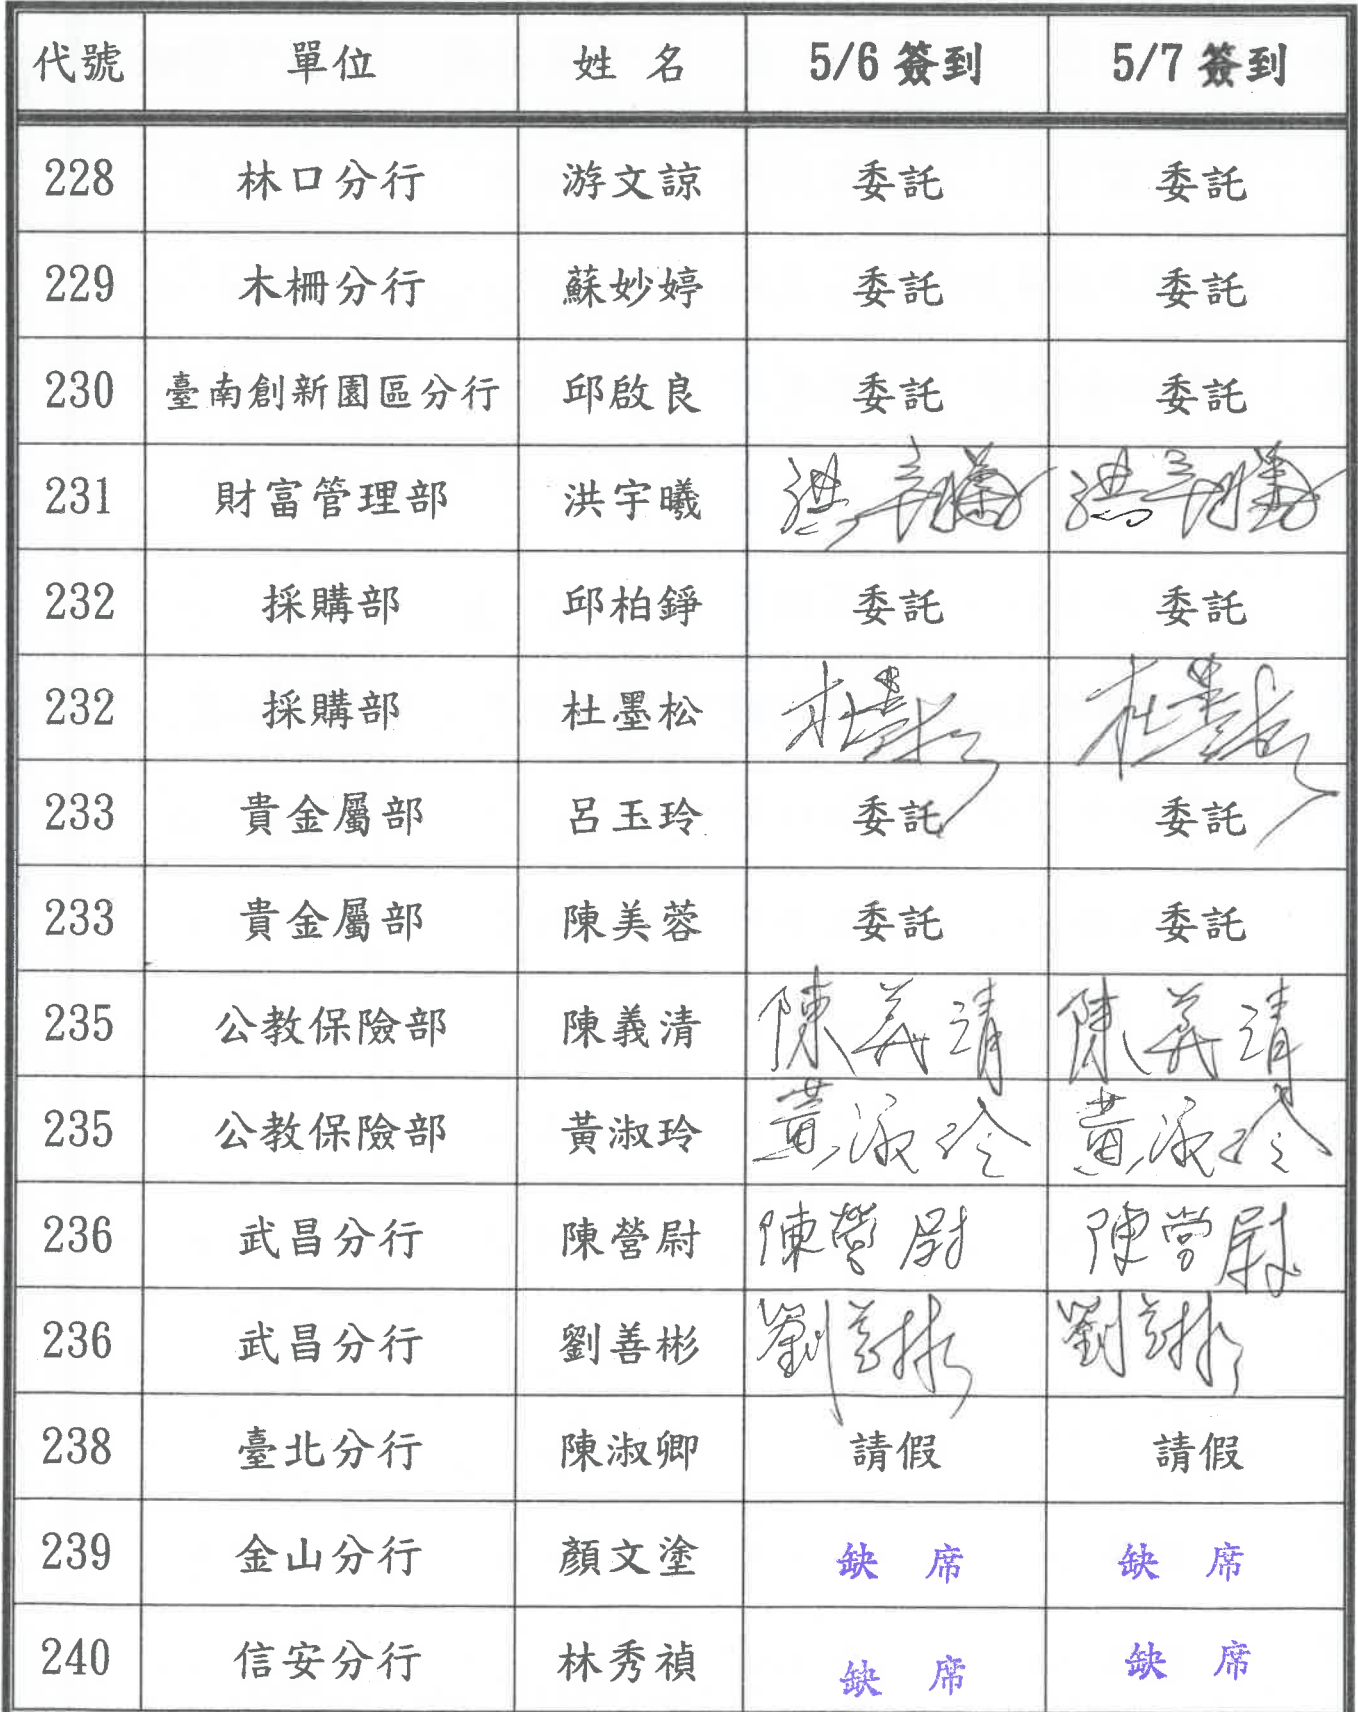 代號 單位 姓 名 5/6 簽到 5/7 簽到
228 林口分行 游文諒 委託 委託
229 木柵分行 蘇妙婷 委託 委託
230 臺南創新園區分行 邱啟良 委託 委託
231 財富管理部 洪宇曦 洪宇曦 洪宇曦
232 採購部 邱柏錚 委託 委託
232 採購部 杜墨松 杜墨松 杜墨松
233 貴金屬部 呂玉玲 委託 委託
233 貴金屬部 陳美蓉 委託 委託
235 公教保險部 陳義清 陳義清 陳義清
235 公教保險部 黃淑玲 黃淑玲 黃淑玲
236 武昌分行 陳營尉 陳營尉 陳営尉
236 武昌分行 劉善彬 劉善彬 劉善彬
238 臺北分行 陳淑卿 請假 請假
239 金山分行 顏文塗 缺 席 缺 席
240 信安分行 林秀禎 缺 席 缺 席